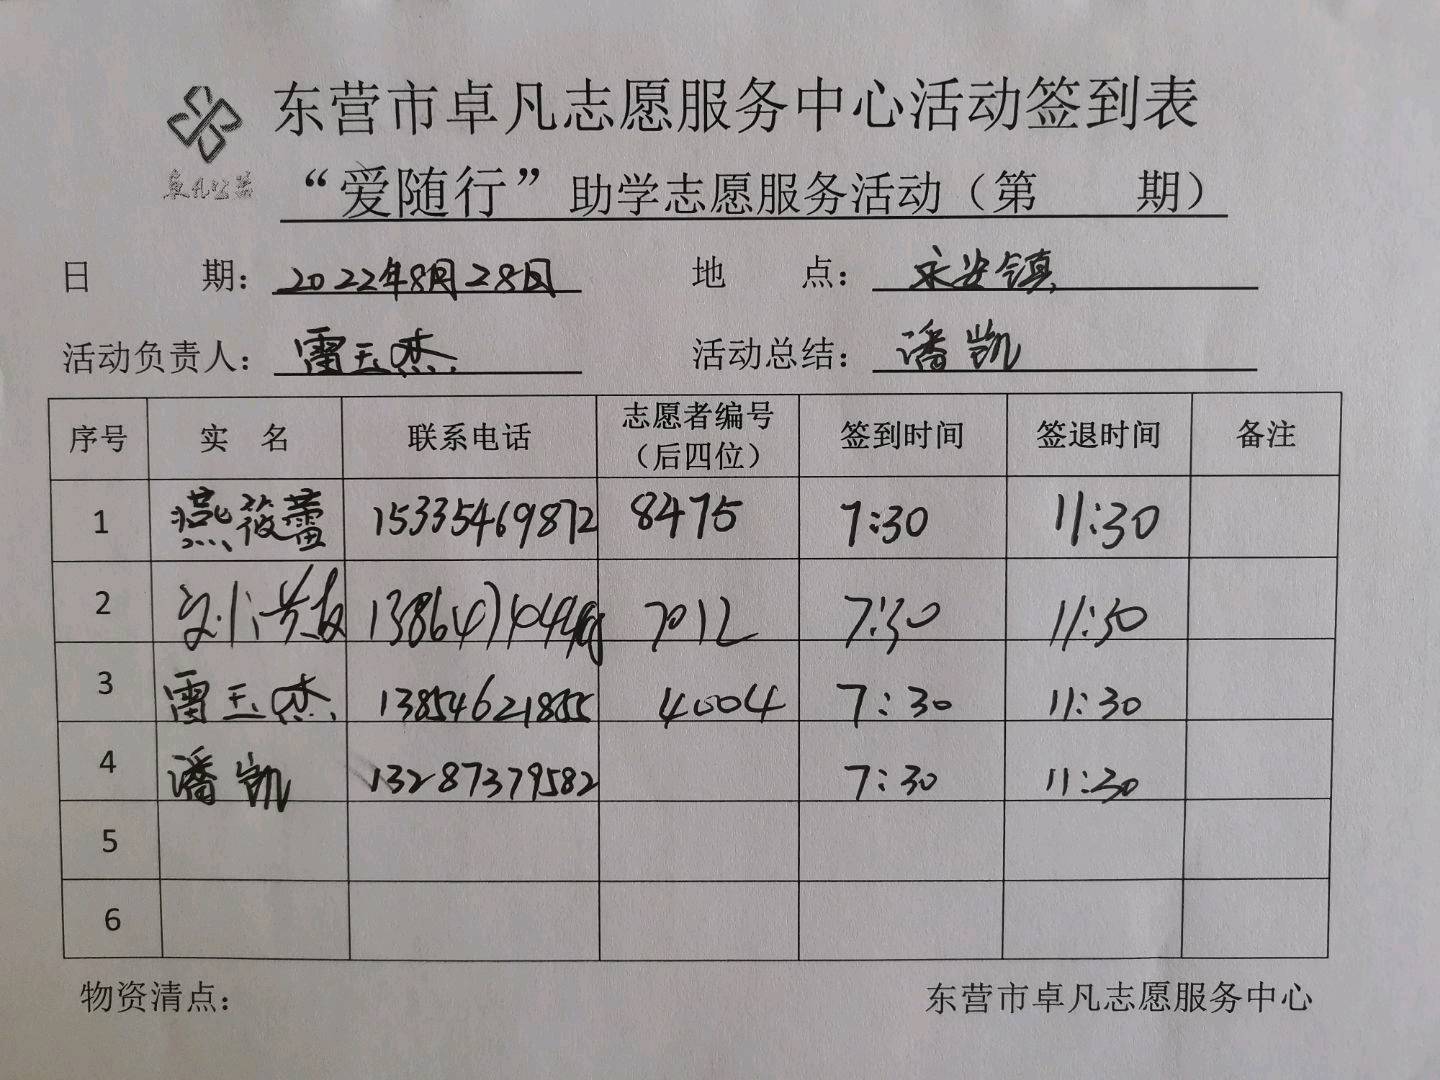 东营市卓凡志愿服务中心活动签到表
卓凡公益
“爱随行”助学志愿服务活动（第 期）
日 期：2022年8月28日 地 点：永安镇
活动负责人：雷玉杰 活动总结：潘凯
序号 实 名 联系电话 志愿者编号（后四位） 签到时间 签退时间 备注
1 燕筱蕾 15335469872 8475 7:30 11:30
2 7012 7:30 11:30
3 雷玉杰 13854621855 4004 7:30 11:30
4 潘凯 13287379582 7:30 11:30
5
6
物资清点： 东营市卓凡志愿服务中心